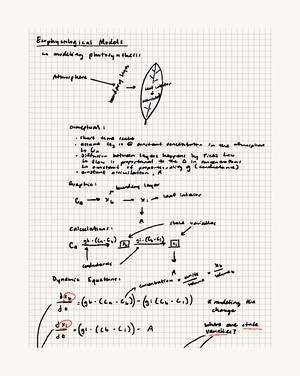 Ecophysiological Models
↳ modeling photosynthesis
Atmosphere
boundary layer
leaf interior
Conceptual:
· short time scale
· assume CO2 is @ constant concentration in the atmosphere
↳ Ca
· Diffusion between layers happens by Fick's law
↳ flow is proportional to the Δ in concentrations
↳ constant of proportionality, g (conductance)
· constant assimilation, A
Graphical:
boundary layer
Ca → xb → xi → leaf interior
↓
A
Calculations:
state variables
Ca gb·(Ca-Cb) xb gi·(Cb-Ci) xi
conductances
A
Dynamic Equations:
concentration = units/volume = xb/volume
dxb/dt = (gb·(Ca-Cb)) - (gi·(Cb-Ci))
* modeling the change
dxi/dt = (gi·(Cb-Ci)) - A
where are state variables?